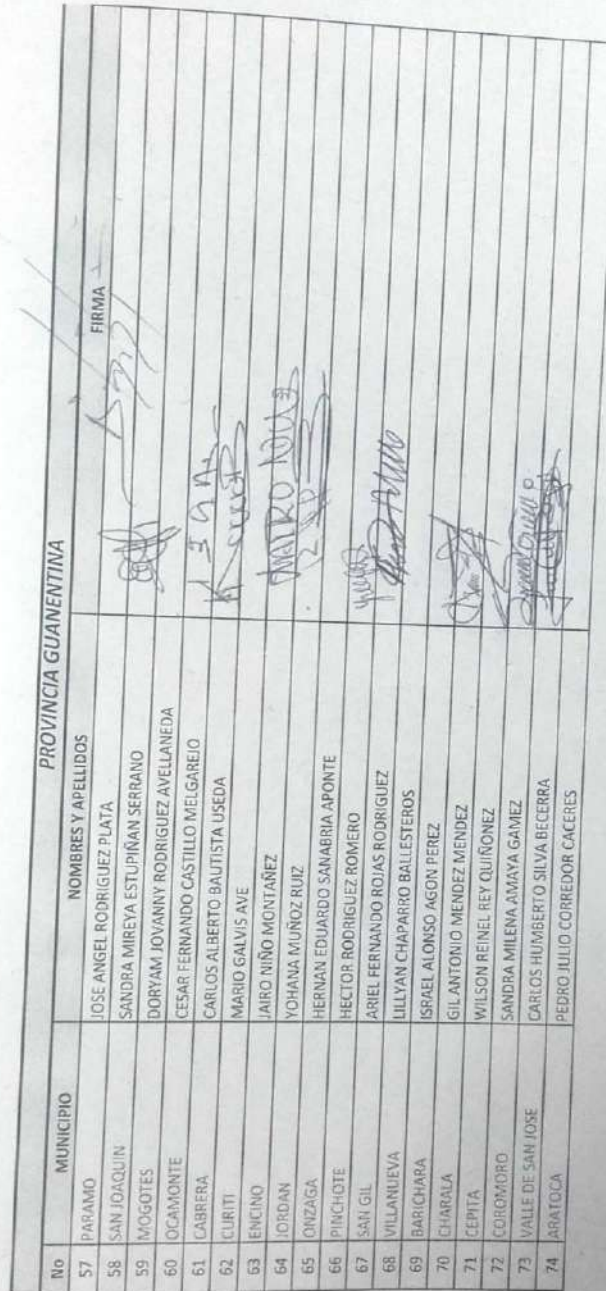 PROVINCIA GUANENTINA
No MUNICIPIO NOMBRES Y APELLIDOS FIRMA
57 PARAMO JOSE ANGEL RODRIGUEZ PLATA
58 SAN JOAQUIN SANDRA MIREYA ESTUPIÑAN SERRANO
59 MOGOTES DORYAM JOVANNY RODRIGUEZ AVELLANEDA
60 OCAMONTE CESAR FERNANDO CASTILLO MELGAREJO
61 CABRERA CARLOS ALBERTO BAUTISTA USEDA
62 CURITI MARIO GALVIS AVE
63 ENCINO JAIRO NIÑO MONTAÑEZ
64 JORDAN YOHANA MUÑOZ RUIZ
65 ONZAGA HERNAN EDUARDO SANABRIA APONTE
66 PINCHOTE HECTOR RODRIGUEZ ROMERO
67 SAN GIL ARIEL FERNANDO ROJAS RODRIGUEZ
68 VILLANUEVA LILLYAN CHAPARRO BALLESTEROS
69 BARICHARA ISRAEL ALONSO AGON PEREZ
70 CHARALA GIL ANTONIO MENDEZ MENDEZ
71 CEPITA WILSON REINEL REY QUIÑONEZ
72 COROMORO SANDRA MILENA AMAYA GAMEZ
73 VALLE DE SAN JOSE CARLOS HUMBERTO SILVA BECERRA
74 ARATOCA PEDRO JULIO CORREDOR CACERES